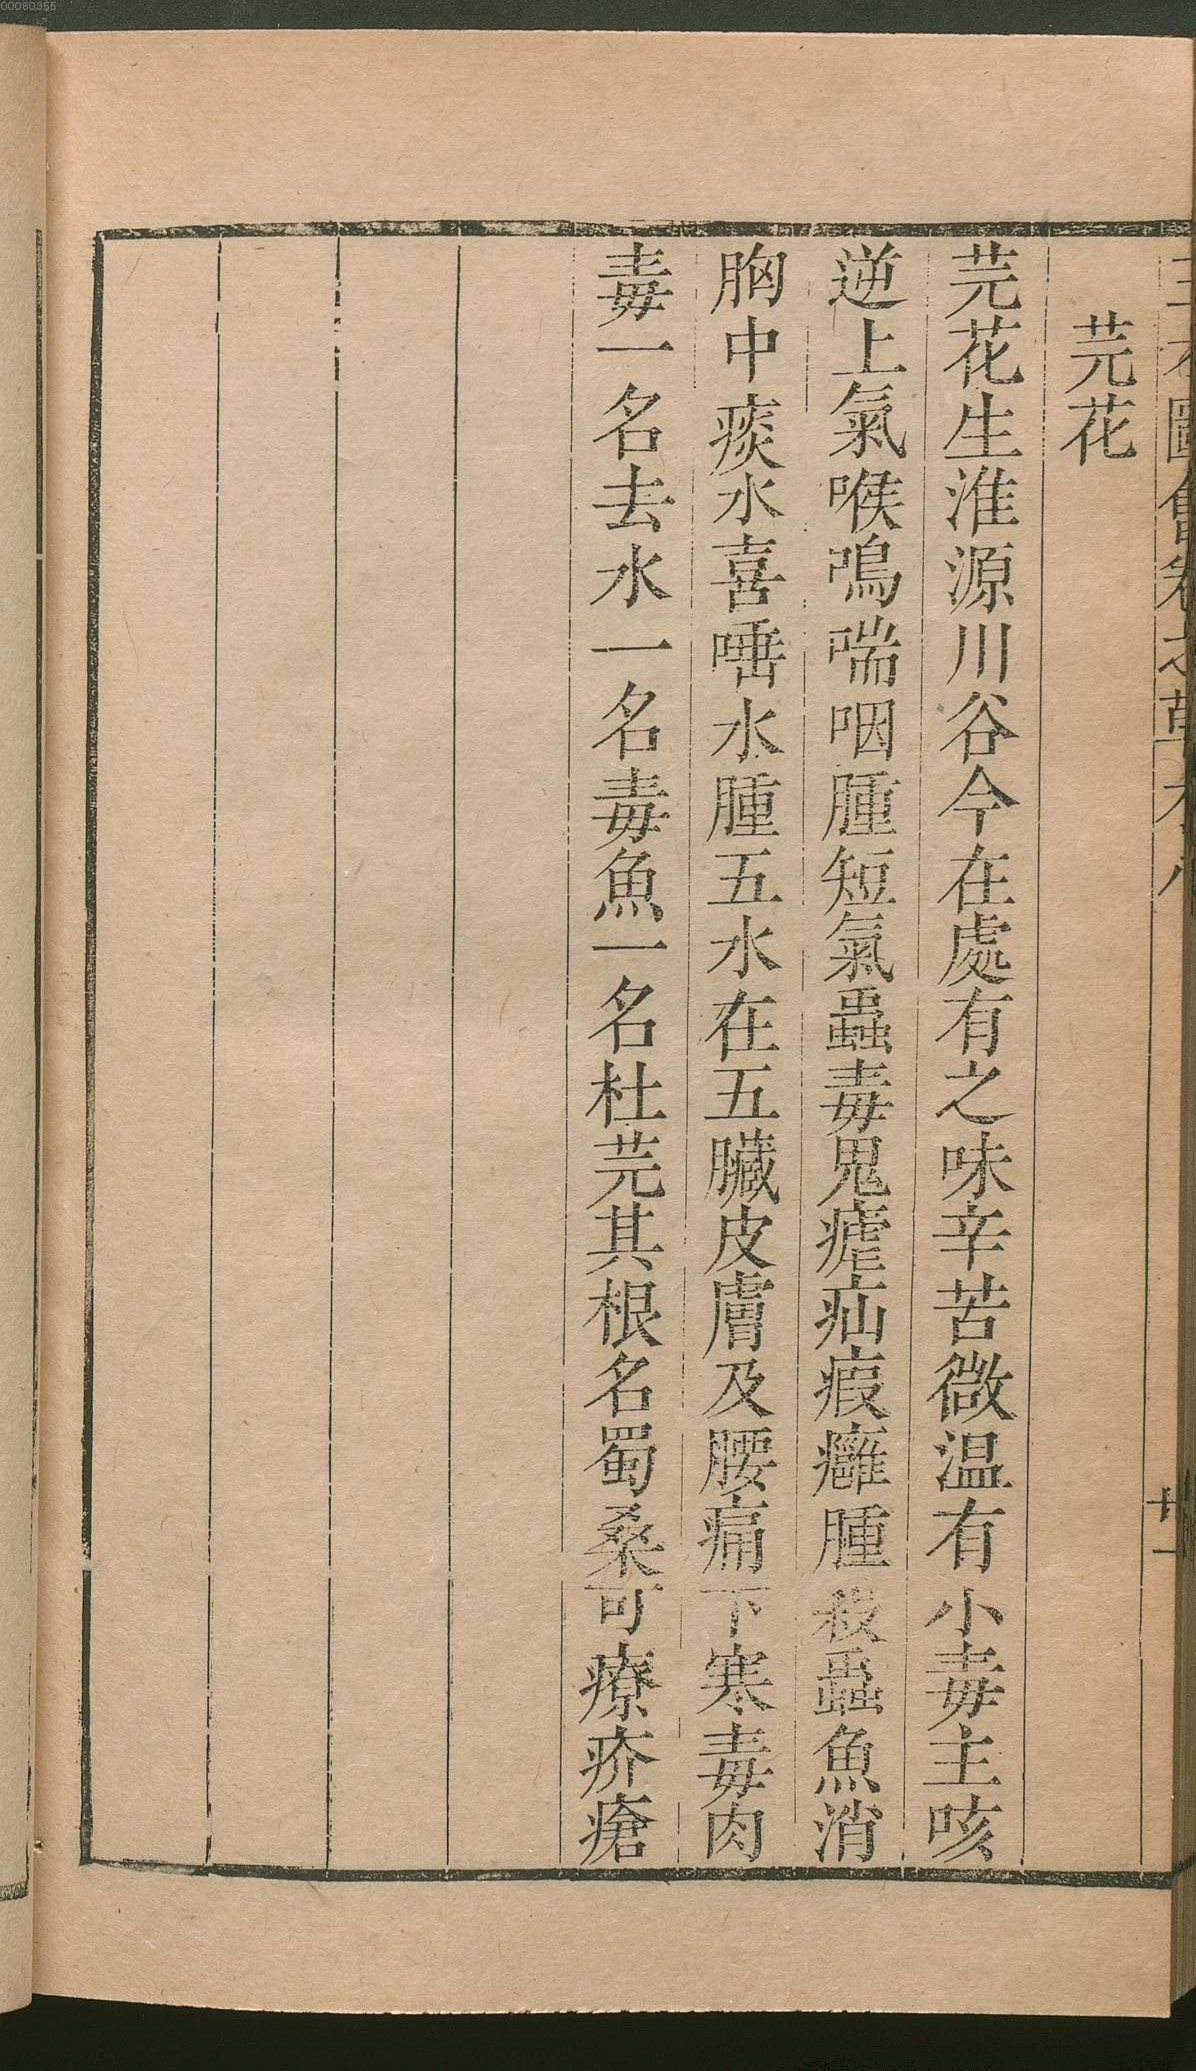 芫花
芫花生淮源川谷今在處有之味辛苦微温有小毒主咳
逆上氣喉鳴喘咽腫短氣蟲毒鬼瘧疝瘕癰腫殺蟲魚消
胸中痰水喜唾水腫五水在五臟皮膚及腰痛下寒毒肉
毒一名去水一名毒魚一名杜芫其根名蜀桑可療疥瘡
00080355